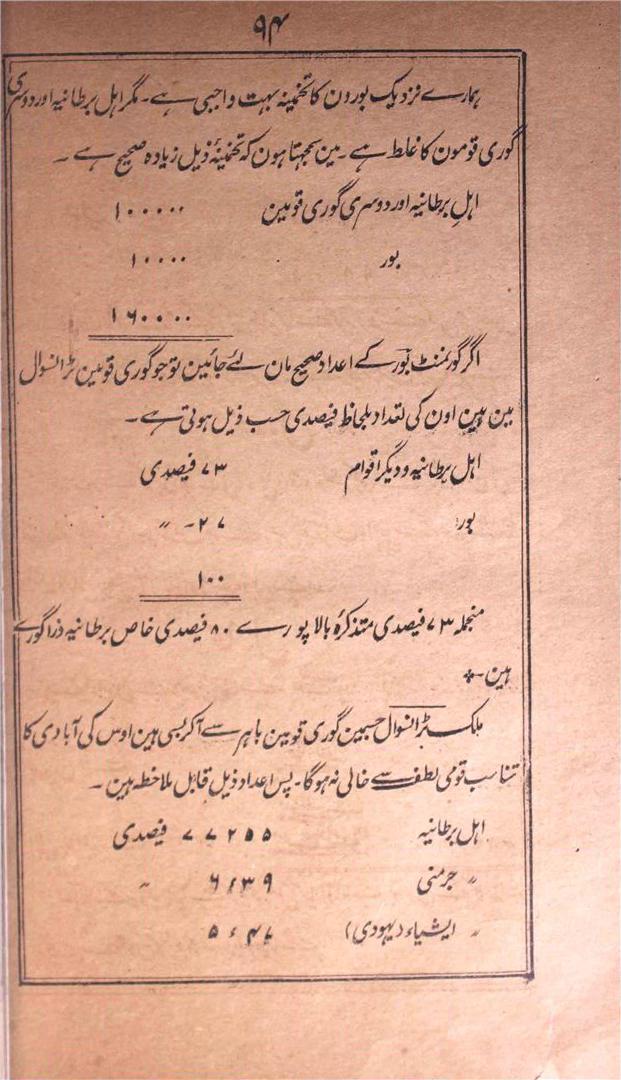 ۹۴
ہمارے نزدیک بورون کا تخمینہ بہت واجبی ہے۔ مگر اہل برطانیہ اور دوسری
گوری قومون کا غلط ہے۔ مین سمجہتا ہون کہ تخمینۂ ذیل زیادہ صحیح ہے۔
اہل برطانیہ اور دوسری گوری قومین ۱۰۰۰۰۰
بور ۱۰۰۰۰
۱۶۰۰۰۰
اگر گورنمنٹ بور کے اعداد صحیح مان لئے جائین تو جو گوری قومین ٹرانسوال
مین ہین اون کی تعداد بلحاظ فیصدی حسب ذیل ہوتی ہے۔
اہل برطانیہ و دیگر اقوام ۷۳ فیصدی
بور ۲۷- 〃
۱۰۰
منجملہ ۷۳ فیصدی متذکرۂ بالا پورے ۸۰ فیصدی خاص برطانیہ نژاد گورے
ہین۔
ملک ٹرانسوال جسمین گوری قومین باہر سے آکر بسی ہین اوس کی آبادی کا
تناسب قومی لطف سے خالی نہ ہوگا۔ پس اعداد ذیل قابل ملاحظہ ہین۔
اہل برطانیہ ۷۷۲۵۵ فیصدی
〃 جرمنی ۶٫۳۹ 〃
〃 ایشیاء (یہودی) ۵٫۴۷